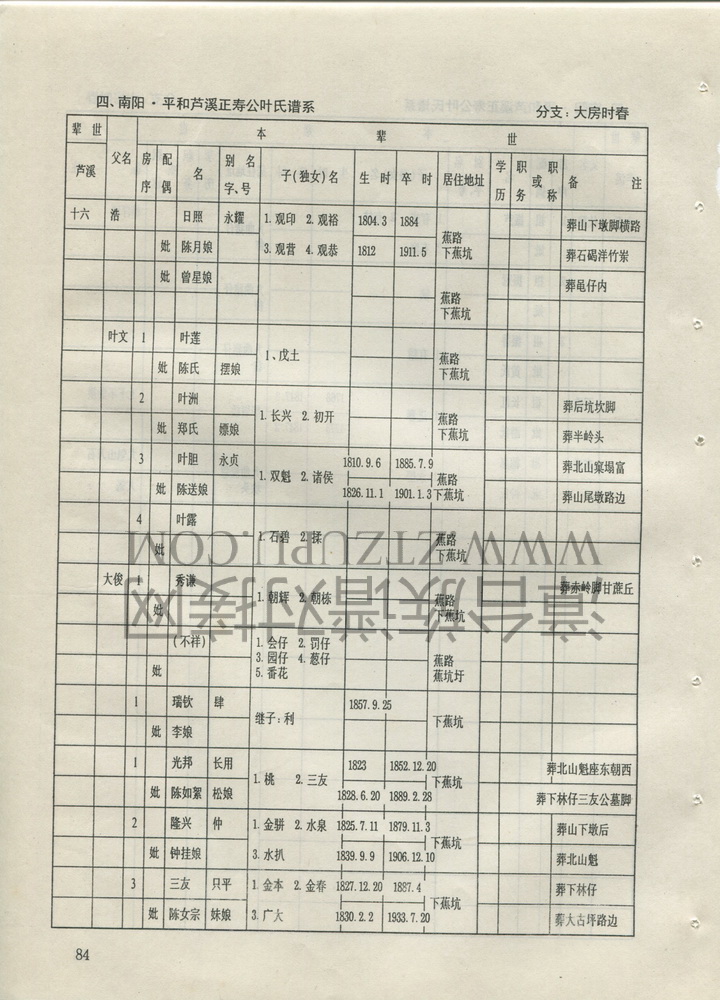 四、南阳·平和芦溪正寿公叶氏谱系 分支：大房时春
辈世 本 辈 世
芦溪 父名 房序 配偶 名 别名字、号 子(独女)名 生时 卒时 居住地址 学历 职务或职称 备注
十六 浩 日照 永耀 1.观印 2.观裕 1804.3 1884 葬山下墩脚横路
妣 陈月娘 3.观营 4.观恭 1812 1911.5 蕉路下蕉坑 葬石碣洋竹岽
妣 曾星娘 葬黾仔内
蕉路下蕉坑
叶文 1 叶莲 1、戊土
妣 陈氏 摆娘 蕉路下蕉坑
2 叶洲 1.长兴 2.初开 葬后坑坎脚
妣 郑氏 嫖娘 蕉路下蕉坑 葬半岭头
3 叶胆 永贞 1.双魁 2.诸侯 1810.9.6 1885.7.9 葬北山窠塌富
妣 陈送娘 1826.11.1 1901.1.3 蕉路下蕉坑 葬山尾墩路边
4 叶露 1.石碧 2.揉
妣 蕉路下蕉坑
大俊 1 秀谦 1.朝辉 2.朝栋 葬赤岭脚甘蔗丘
妣 蕉路下蕉坑
(不祥) 1.会仔 2.罚仔
3.园仔 4.葱仔
妣 5.番花 蕉路蕉坑圩
1 瑞钦 肆 继子:利 1857.9.25
妣 李娘 下蕉坑
1 光邦 长用 1.桃 2.三友 1823 1852.12.20 葬北山魁座东朝西
妣 陈如絮 松娘 1828.6.20 1889.2.28 下蕉坑 葬下林仔三友公墓脚
2 隆兴 仲 1.金骈 2.水泉 1825.7.11 1879.11.3 葬山下墩后
妣 钟挂娘 3.水扒 1839.9.9 1906.12.10 下蕉坑 葬北山魁
3 三友 只平 1.金本 2.金春 1827.12.20 1887.4 葬下林仔
妣 陈女宗 妹娘 3.广大 1830.2.2 1933.7.20 下蕉坑 葬大古坪路边
84
漳台族谱对接网
WWW.ZTZUPU.COM